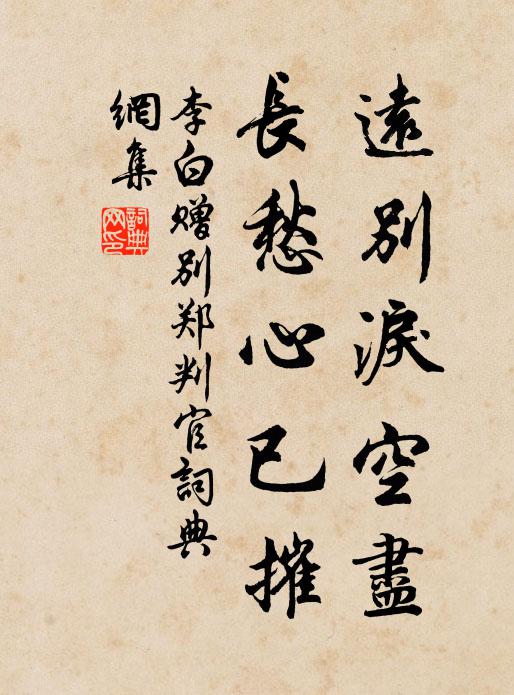 遠別淚空盡
長愁心已摧
李白赠别郑判官詞典
網集
詞典
网印